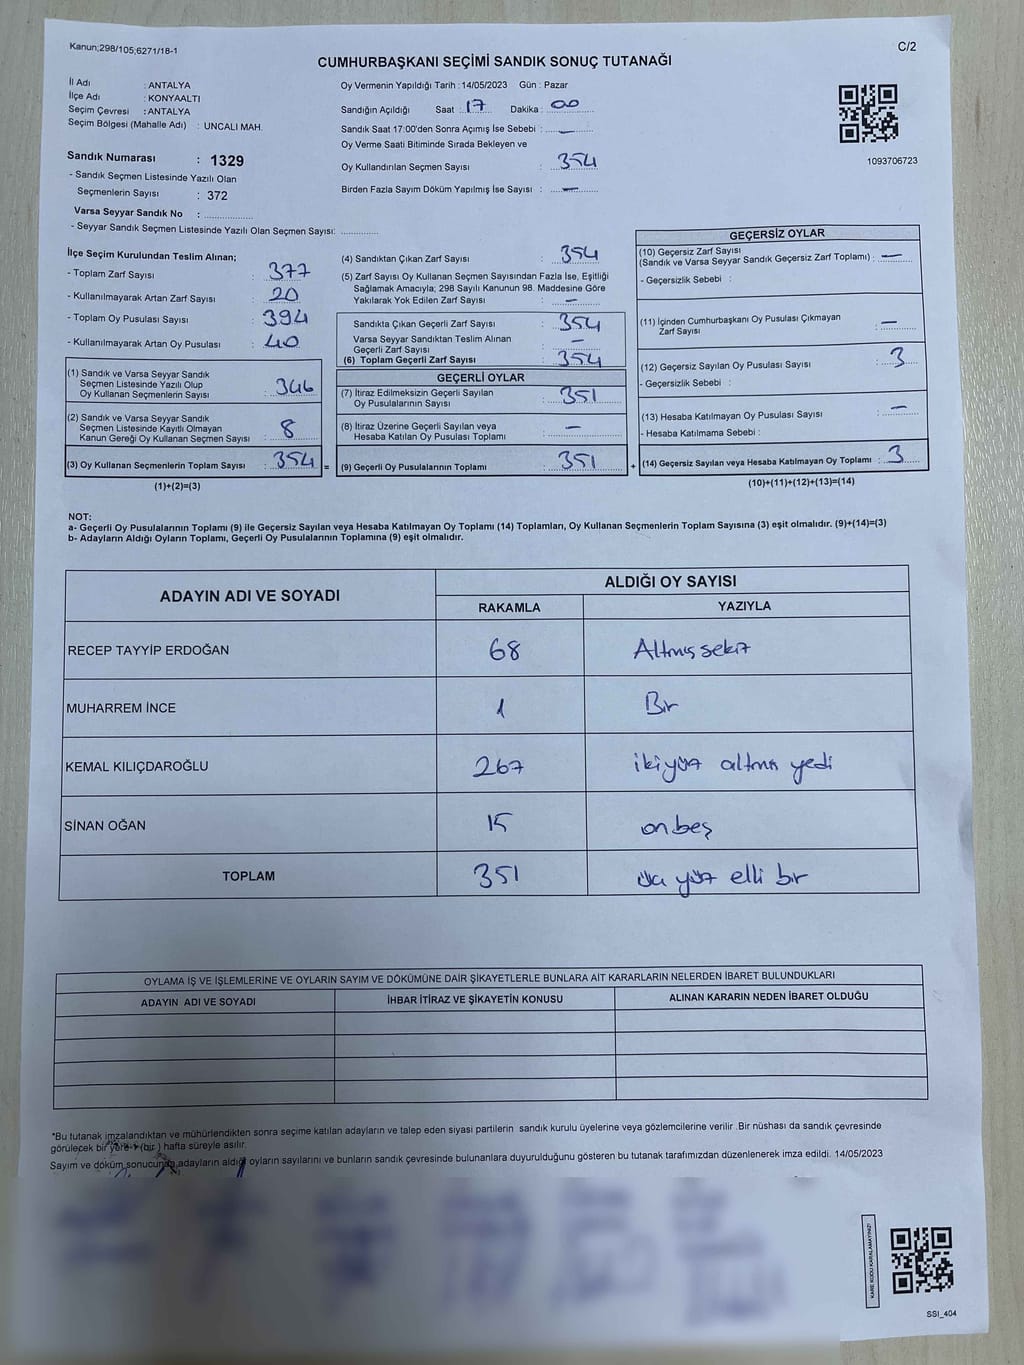 Kanun;298/105;6271/18-1
C/2
CUMHURBAŞKANI SEÇİMİ SANDIK SONUÇ TUTANAĞI
İl Adı : ANTALYA
İlçe Adı : KONYAALTI
Seçim Çevresi : ANTALYA
Seçim Bölgesi (Mahalle Adı) : UNCALI MAH.
Sandık Numarası : 1329
- Sandık Seçmen Listesinde Yazılı Olan
Seçmenlerin Sayısı : 372
Varsa Seyyar Sandık No : ..............
- Seyyar Sandık Seçmen Listesinde Yazılı Olan Seçmen Sayısı: ............
Oy Vermenin Yapıldığı Tarih : 14/05/2023 Gün : Pazar
Sandığın Açıldığı Saat : 17 Dakika : 00
Sandık Saat 17:00'den Sonra Açımış İse Sebebi : —
Oy Verme Saati Bitiminde Sırada Bekleyen ve
Oy Kullandırılan Seçmen Sayısı : 354
Birden Fazla Sayım Döküm Yapılmış İse Sayısı : —
1093706723
İlçe Seçim Kurulundan Teslim Alınan;
- Toplam Zarf Sayısı : 377
- Kullanılmayarak Artan Zarf Sayısı : 20
- Toplam Oy Pusulası Sayısı : 394
- Kullanılmayarak Artan Oy Pusulası : 40
(1) Sandık ve Varsa Seyyar Sandık
Seçmen Listesinde Yazılı Olup
Oy Kullanan Seçmenlerin Sayısı : 346
(2) Sandık ve Varsa Seyyar Sandık
Seçmen Listesinde Kayıtlı Olmayan
Kanun Gereği Oy Kullanan Seçmen Sayısı : 8
(3) Oy Kullanan Seçmenlerin Toplam Sayısı : 354 =
(1)+(2)=(3)
(4) Sandıktan Çıkan Zarf Sayısı : 354
(5) Zarf Sayısı Oy Kullanan Seçmen Sayısından Fazla İse, Eşitliği
Sağlamak Amacıyla; 298 Sayılı Kanunun 98. Maddesine Göre
Yakılarak Yok Edilen Zarf Sayısı : —
Sandıkta Çıkan Geçerli Zarf Sayısı : 354
Varsa Seyyar Sandıktan Teslim Alınan
Geçerli Zarf Sayısı : —
(6) Toplam Geçerli Zarf Sayısı : 354
GEÇERLİ OYLAR
(7) İtiraz Edilmeksizin Geçerli Sayılan
Oy Pusulalarının Sayısı : 351
(8) İtiraz Üzerine Geçerli Sayılan veya
Hesaba Katılan Oy Pusulası Toplamı : —
(9) Geçerli Oy Pusulalarının Toplamı : 351 +
GEÇERSİZ OYLAR
(10) Geçersiz Zarf Sayısı
(Sandık ve Varsa Seyyar Sandık Geçersiz Zarf Toplamı) : —
- Geçersizlik Sebebi :
(11) İçinden Cumhurbaşkanı Oy Pusulası Çıkmayan
Zarf Sayısı : —
(12) Geçersiz Sayılan Oy Pusulası Sayısı : 3
- Geçersizlik Sebebi :
(13) Hesaba Katılmayan Oy Pusulası Sayısı : —
- Hesaba Katılmama Sebebi :
(14) Geçersiz Sayılan veya Hesaba Katılmayan Oy Toplamı : 3
(10)+(11)+(12)+(13)=(14)
NOT:
a- Geçerli Oy Pusulalarının Toplamı (9) ile Geçersiz Sayılan veya Hesaba Katılmayan Oy Toplamı (14) Toplamları, Oy Kullanan Seçmenlerin Toplam Sayısına (3) eşit olmalıdır. (9)+(14)=(3)
b- Adayların Aldığı Oyların Toplamı, Geçerli Oy Pusulalarının Toplamına (9) eşit olmalıdır.
ADAYIN ADI VE SOYADI ALDIĞI OY SAYISI
RAKAMLA YAZIYLA
RECEP TAYYİP ERDOĞAN 68 Altmış sekiz
MUHARREM İNCE 1 Bir
KEMAL KILIÇDAROĞLU 267 ikiyüz altmış yedi
SİNAN OĞAN 15 onbeş
TOPLAM 351 üç yüz elli bir
OYLAMA İŞ VE İŞLEMLERİNE VE OYLARIN SAYIM VE DÖKÜMÜNE DAİR ŞİKAYETLERLE BUNLARA AİT KARARLARIN NELERDEN İBARET BULUNDUKLARI
ADAYIN ADI VE SOYADI İHBAR İTİRAZ VE ŞİKAYETİN KONUSU ALINAN KARARIN NEDEN İBARET OLDUĞU
*Bu tutanak imzalandıktan ve mühürlendikten sonra seçime katılan adayların ve talep eden siyasi partilerin sandık kurulu üyelerine veya gözlemcilerine verilir .Bir nüshası da sandık çevresinde
görülecek bir yere 1 (bir ) hafta süreyle asılır.
Sayım ve döküm sonucunda adayların aldığı oyların sayılarını ve bunların sandık çevresinde bulunanlara duyurulduğunu gösteren bu tutanak tarafımızdan düzenlenerek imza edildi. 14/05/2023
KARE KODU KARALAMAYINIZ!
SSI_404